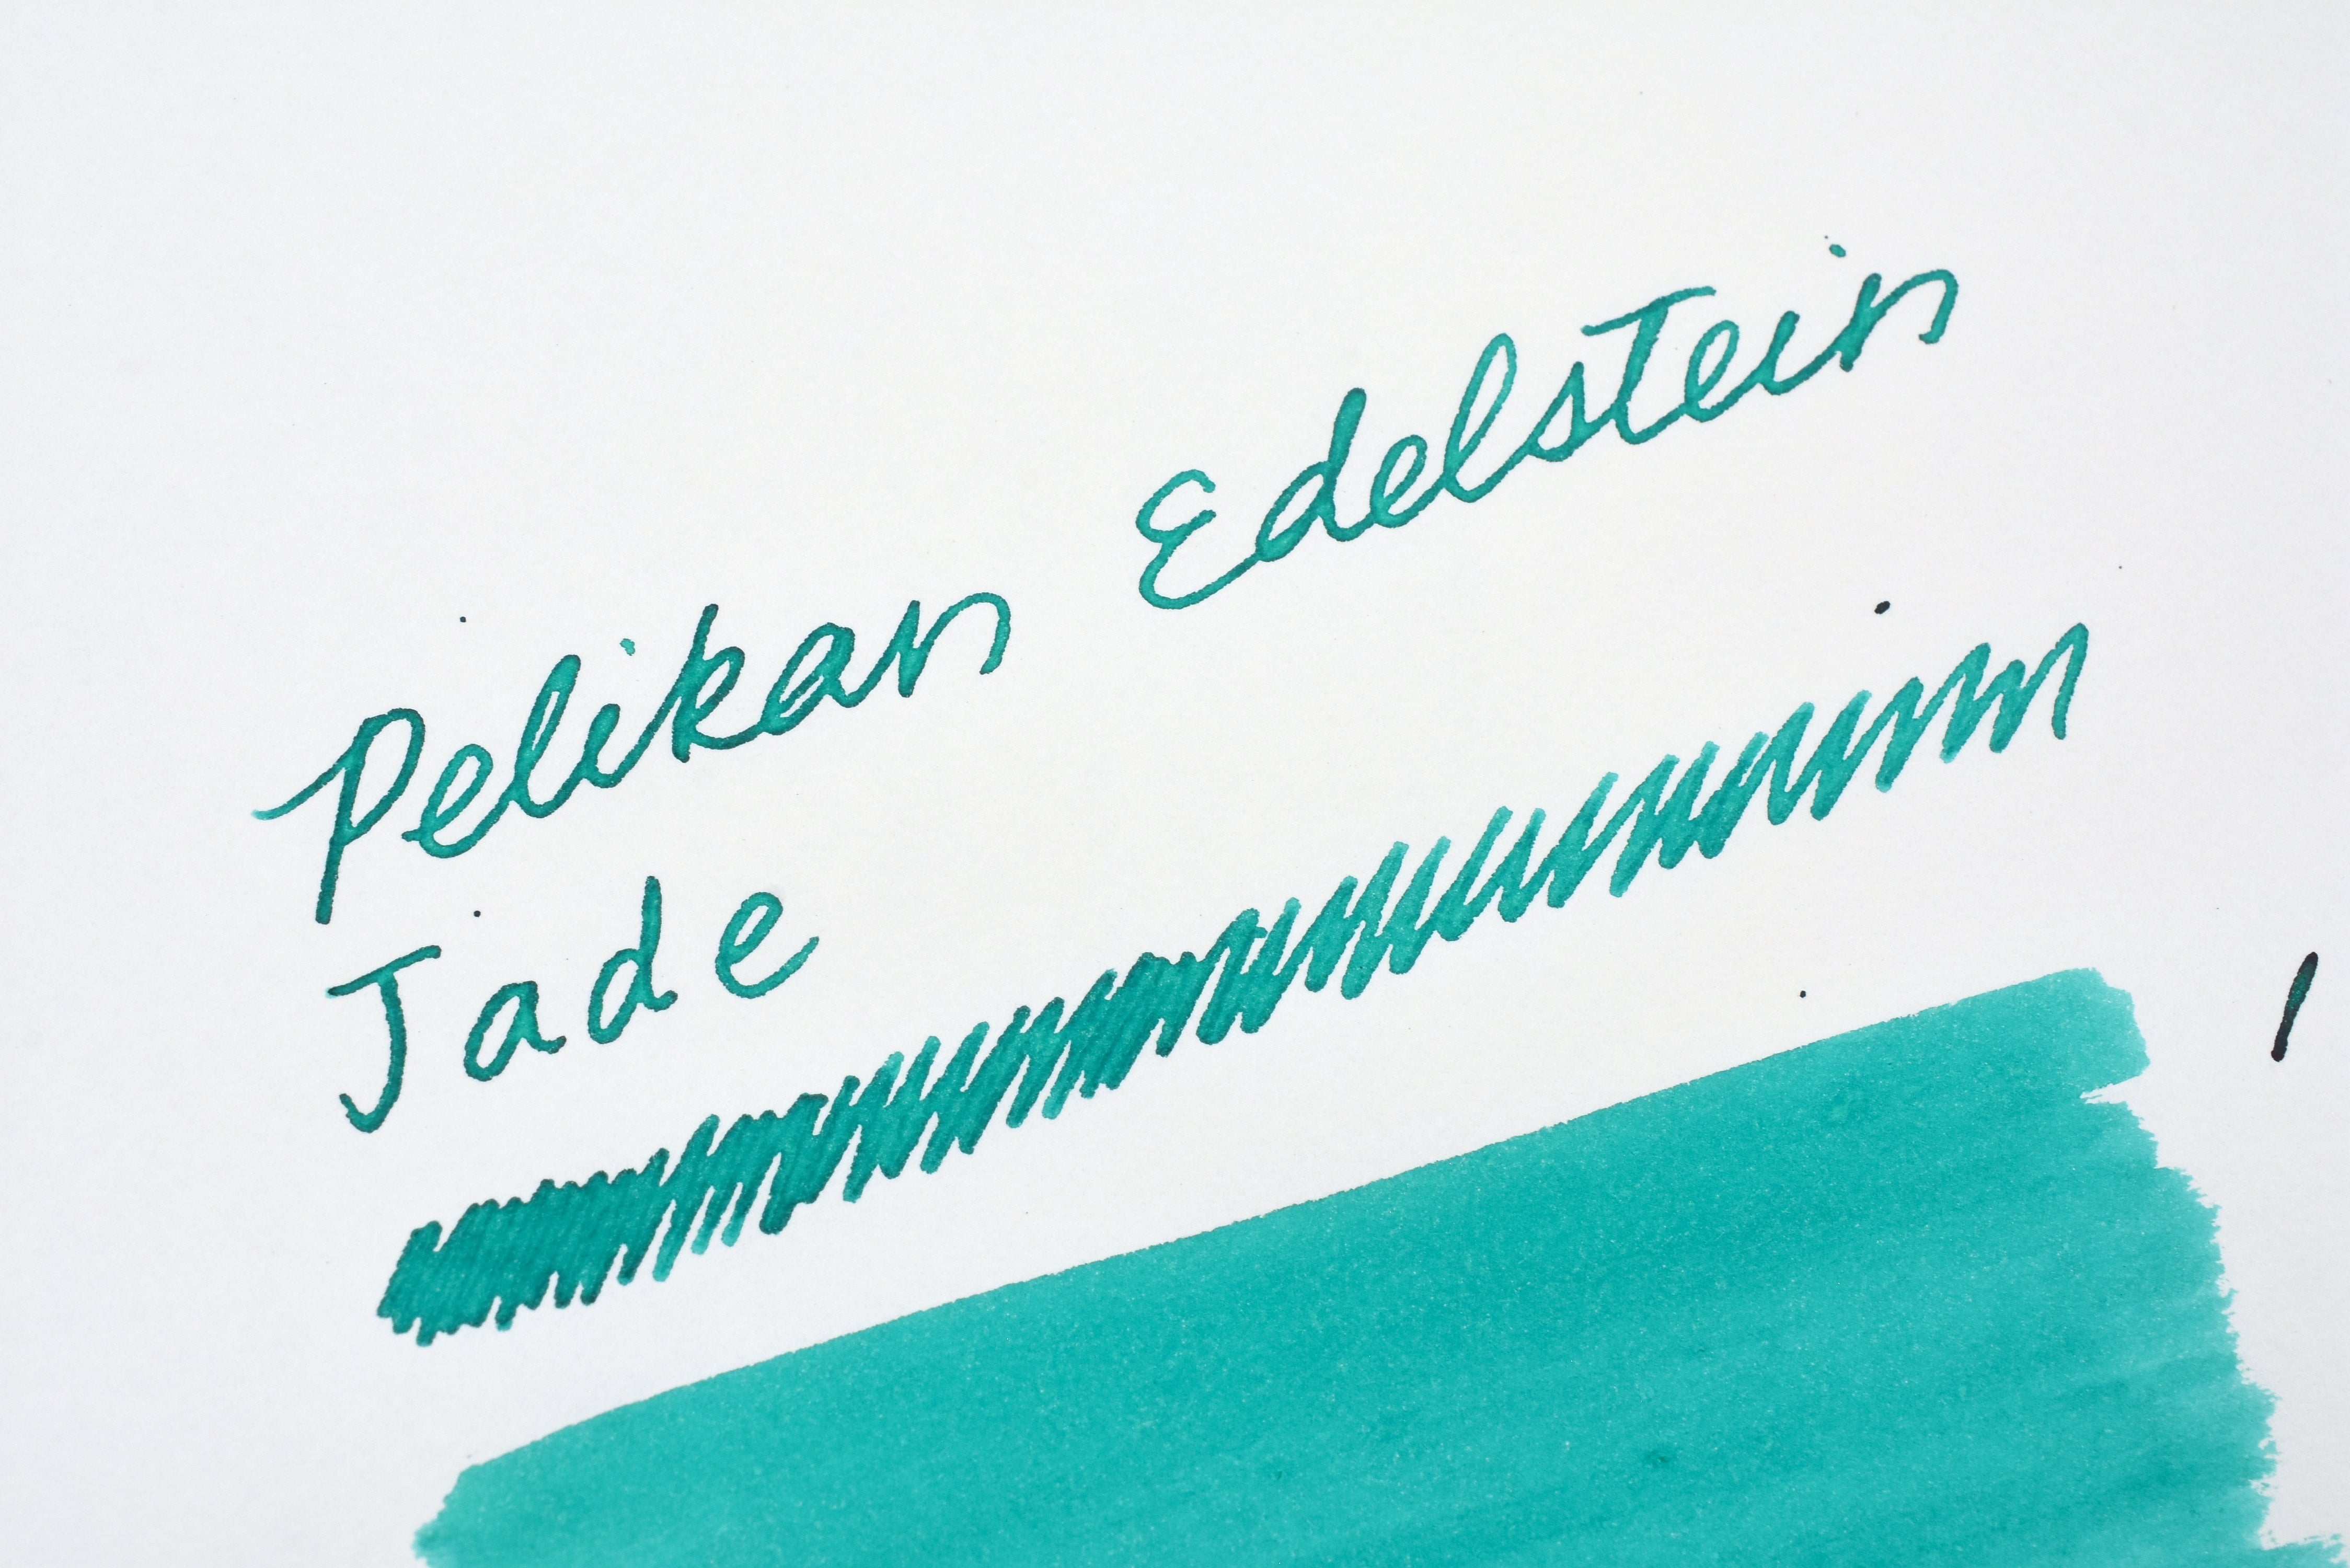 Pelikan Edelstein
Jade